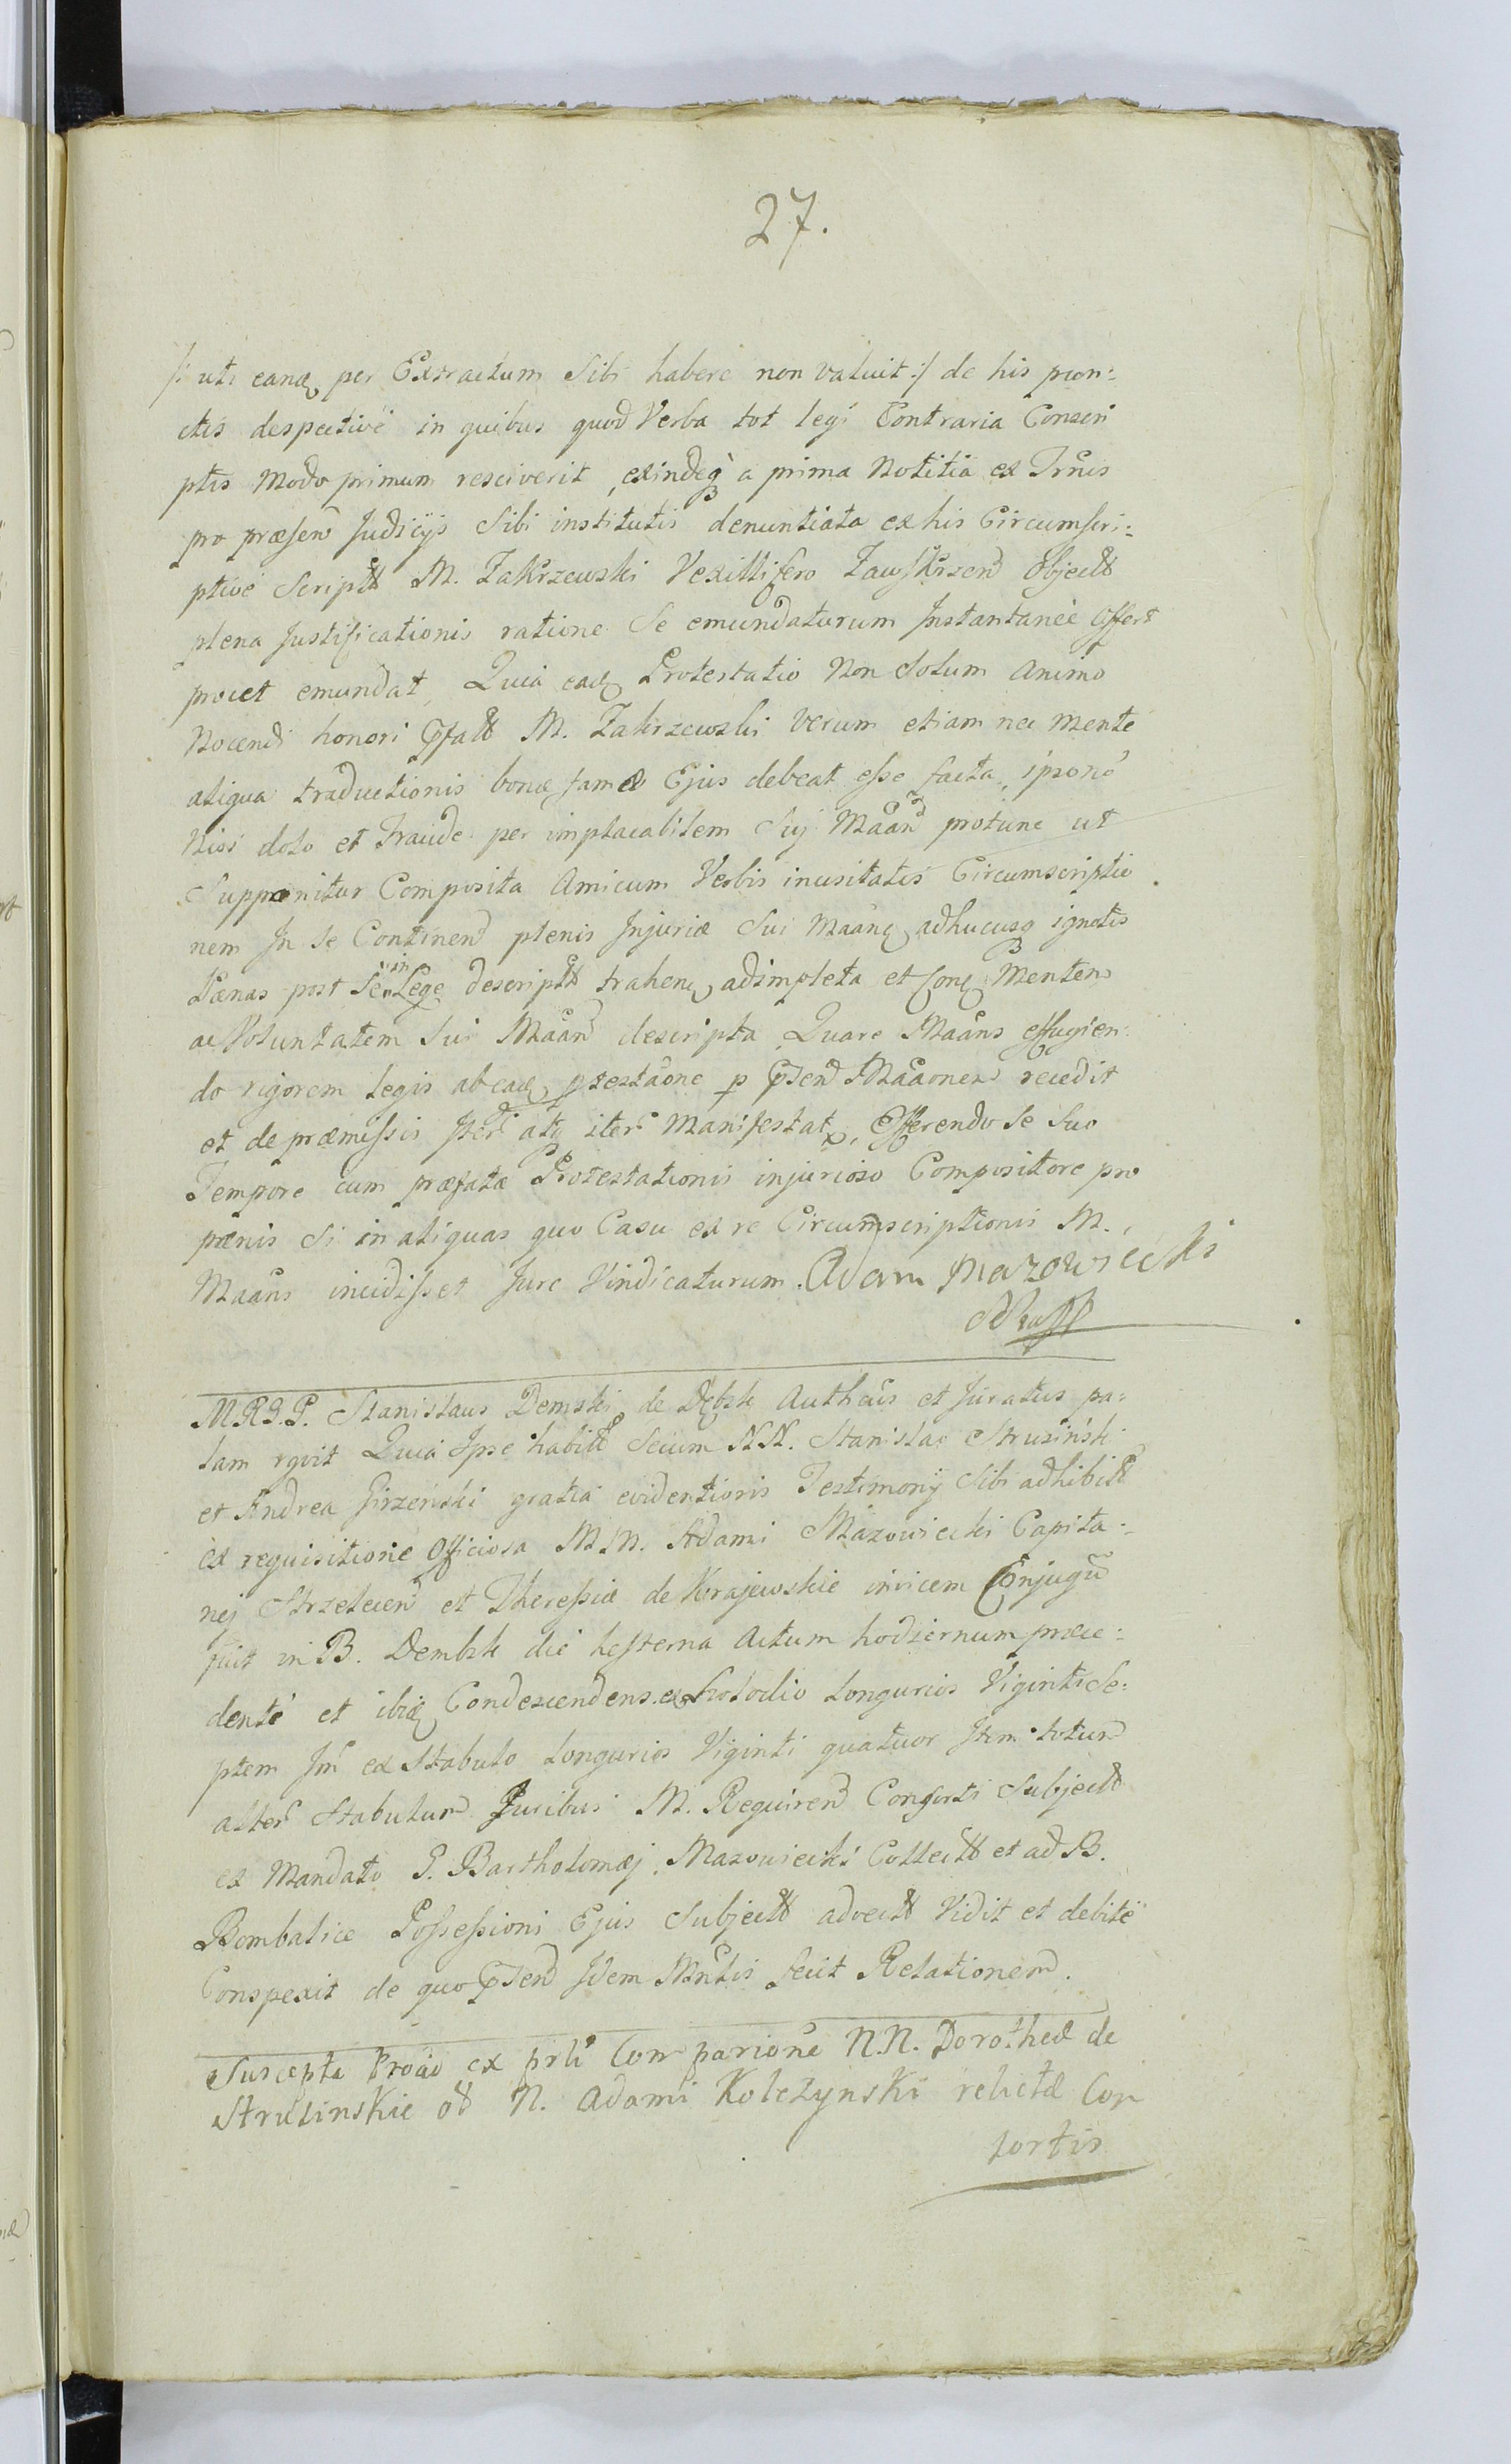 27.
/: uti eandem per Extractum Sibi habere non valuit :/ de his pun-
ctis despective in quibus quod Verba tot legi Contraria Conscri
ptis Modo primum resciverit, exindeq a prima Notitia ex Trmis
pro præsen Judicijs Sibi institutis denuntiata ex his Circumscri:
ptive Script M. Zakrzewski Vexillifero Zawskrzen Object
plena Justificationis ratione Se emundaturum Instantanee Offert
prout emundat, Quia ead Protestatio Non Solum animo
Nocendi honori M. Zakrzewski Verum etiam nec mente
aliqua traductionis bonæ famæ Ejus debeat esse facta,
Nisi dolo et Fraude per implacabilem Sui Maan protunc ut
Supponitur Composita Amicum Verbis inusitatis Circumscriptio
nem In Se Continen plenis Injuriæ Sui adhucusq ignotis
Pænas post Se in Lege descript trahen adimpleta et Mentem
ac Voluntatem Sui Maan descripta Quare Maans effugien
do rigorem legis ab ead recedit
et de præmissis atq iter Manifestat, Offerendo Se Suo
Tempore cum præfatæ Protestationis injurioso Compositore pro
pænis Si in aliquas quo Casu ex re Circumscriptionis M.
Maans incidisset Jure Vindicaturum. Adam Mazowiecki

M.R.G.P. Stanislaus Demski de Dębsk Autheus et Juratus pa:
lam rgvit Quia Ipse habit Secum NN. Stanislao Strusinski
et Andrea Girzenski gratia evidentioris Testimonij Sibi adhibit
ex requisitione Officiosa M.M. Adami Mazowiecki Capita:
nej Strzelecen et Theressiæ de Krajewskie invicem Conjugu
fuit in B. Dembsk die hesterna Actum hodiernum præce:
dente et ibid Condescendens longurios Viginti Se:
ptem Im ex Stabulo longurios Viginti quatuor Item totum
alter Stabulum Juribus M. Requiren Consorti Subject
ex Mandato G. Bartholomæj Mazowiecki Collect et ad B.
Bombalice Possessioni Ejus Subject advect Vidit et debite
Conspexit de quo Idem Mntlis fecit Relationem.

Suscepta Proao ex prli Comparione N.N. Dorotheæ de
Strusinskie N. Adami Kolczynski relictæ Con
sortis